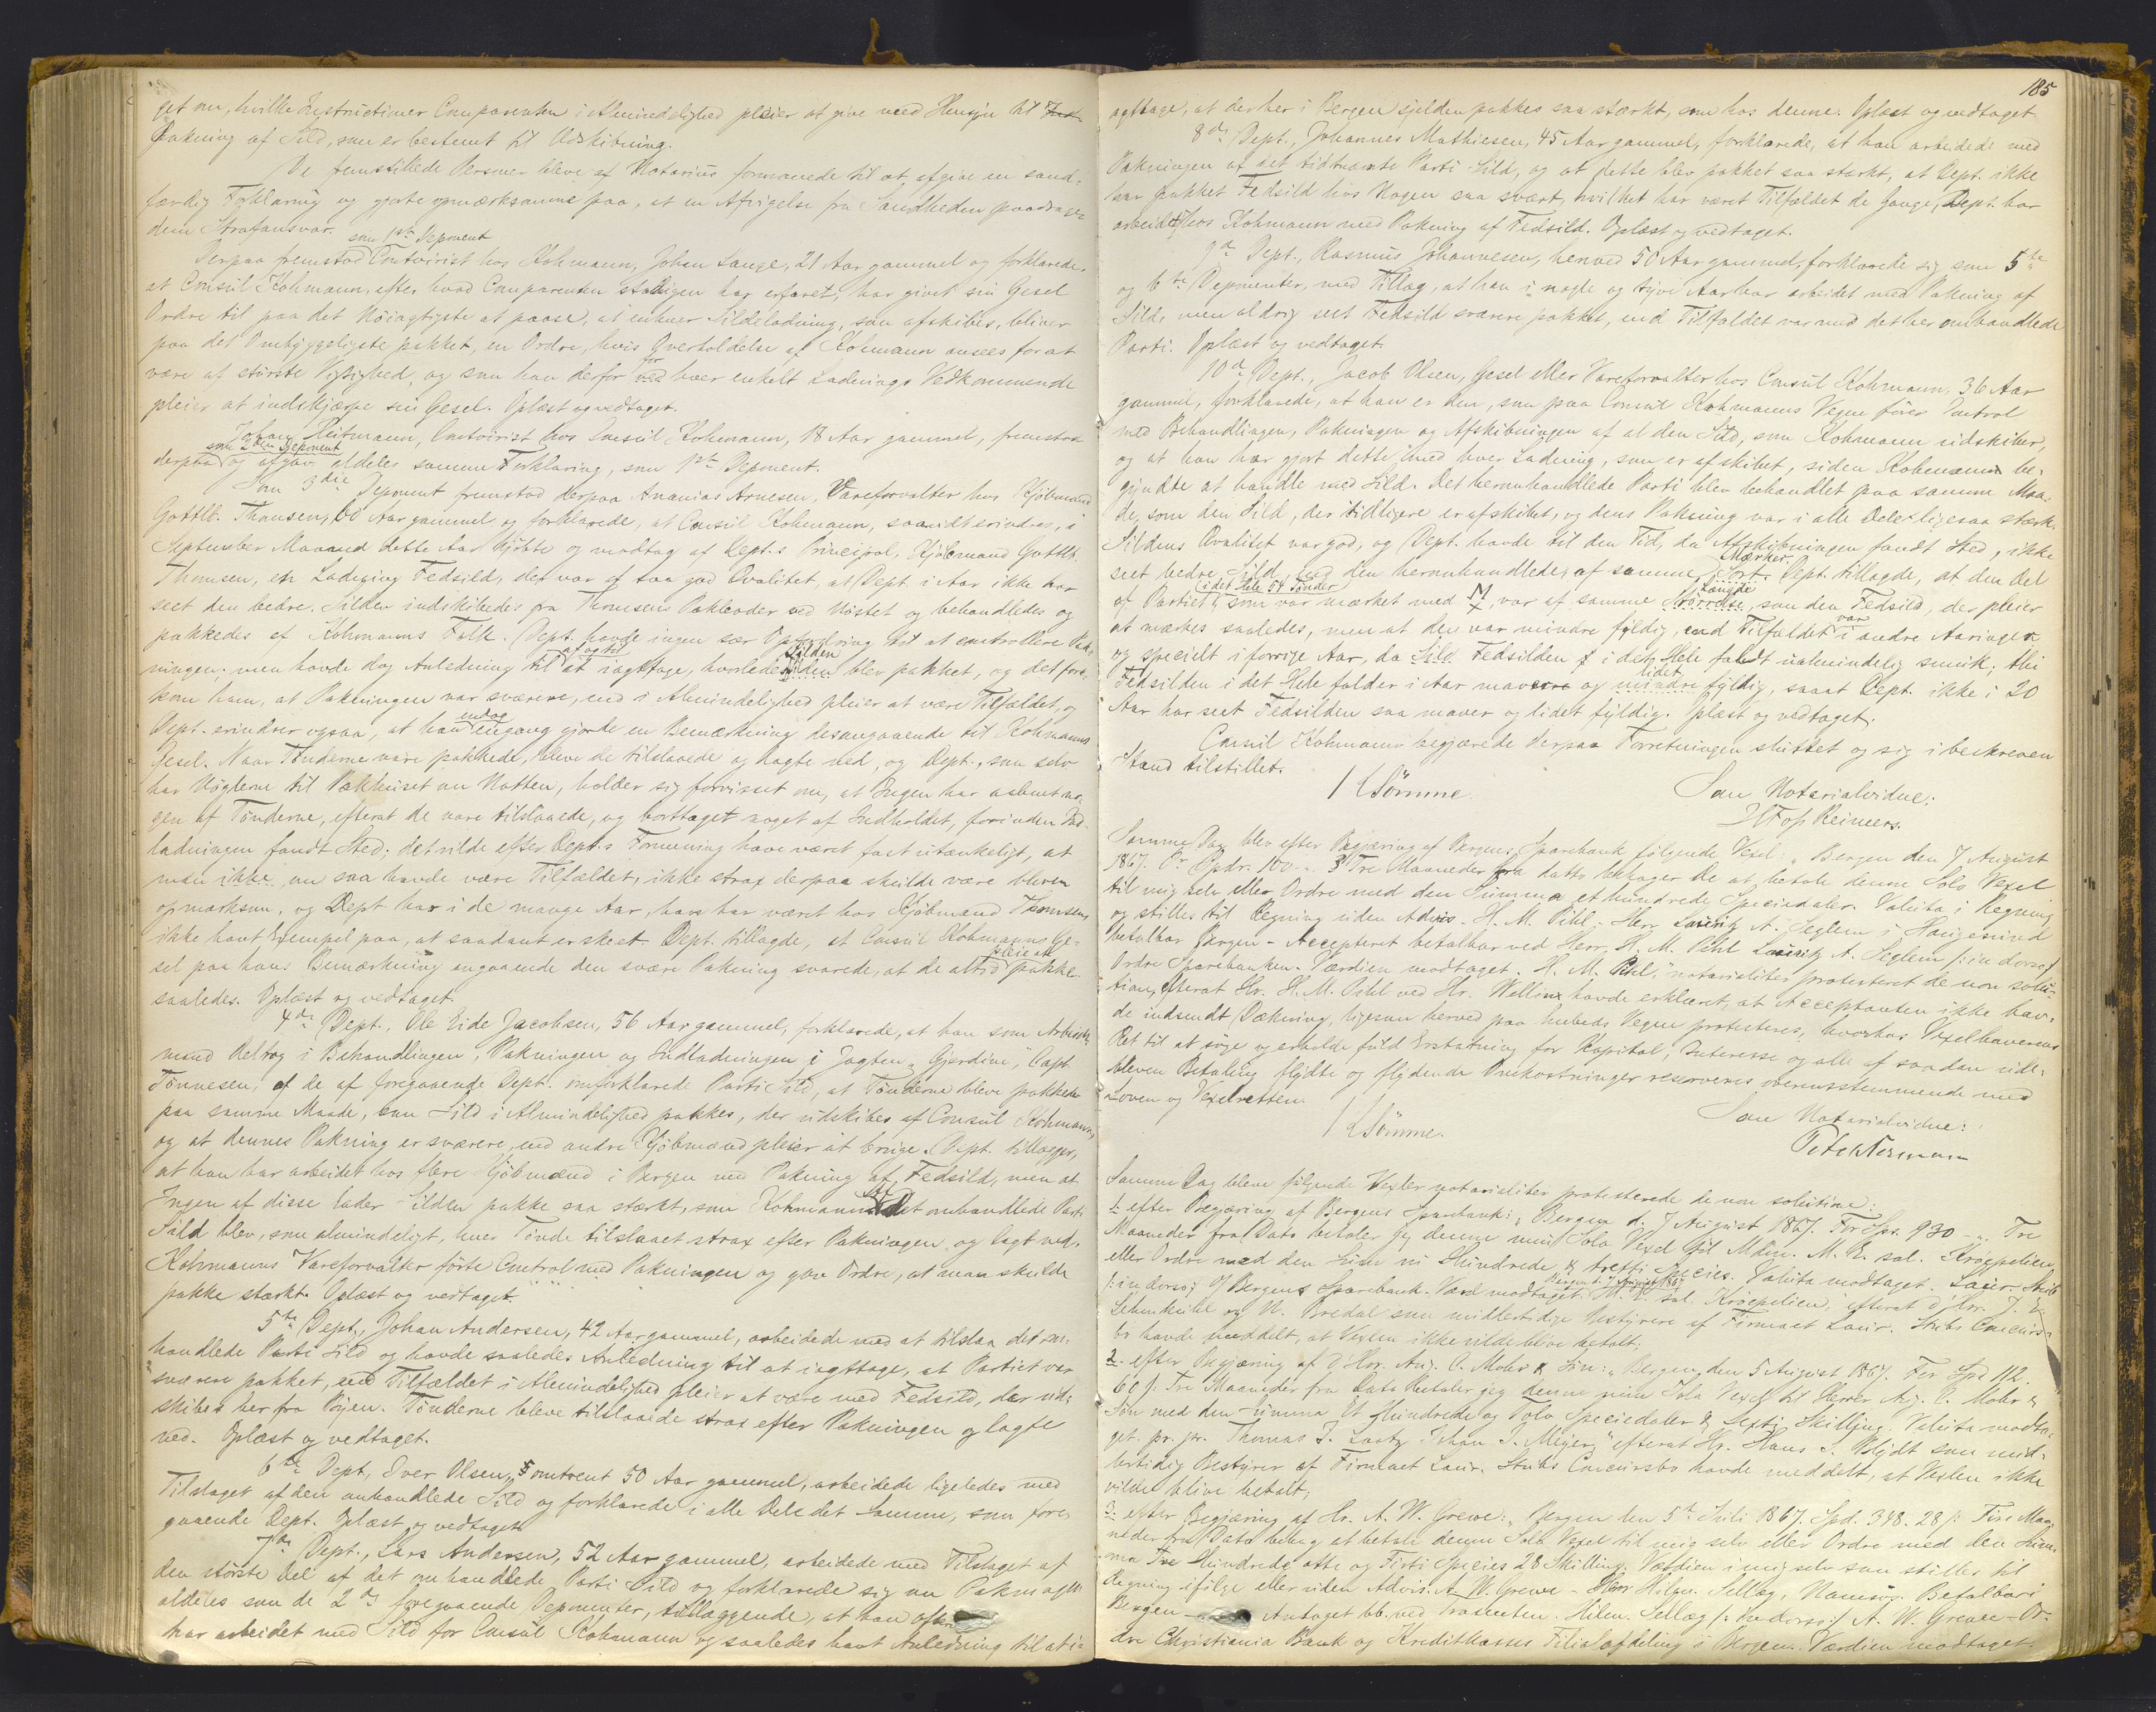 get om, hvilke Instructioner Comparenten i Almindelighed pleier at give med Hensyn til
Pakning af Sild, som er bestemt til Udskibning.
De fremstillede Personer bleve af Notarius formanede til at afgive en sand-
færdig Forklaring og gjorte opmærksomme paa, at en Afvigelse fra Sandheden paadrager
dem Strafansvar.
som 1ste Deponent
Derpaa fremstod Contoirist hos Kohmann, Johan Lange, 21 Aar gammel og forklarede,
at Consul Kohmann, efter hvad Comparenten stadigen har erfaret, har givet sin Gesel
Ordre til paa det Nöiagtigste at paase, at enhver Sildeladning, som afskibes, bliver
paa det Omhyggeligste pakket, en Ordre, hvis Overholdelse af Kohmann ansees for at
være af störste Vigtighed, og som han derfor for hver enkelt Ladnings Vedkommende
pleier at indskjærpe sin Gesel. Oplæst og vedtaget.
Johan Reitmann, Contoirist hos Consul Kohmann, 18 Aar gammel, fremstod
som 2den Deponent
derpaa og afgav aldeles samme Forklaring, som 1ste Deponent.
Som 3die Deponent fremstod derpaa Ananias Arnesen, Vareforvalter hos Kjöbmand
Gottlb. Thomsen, 60 Aar gammel og forklarede, at Consul Kohmann, saavidt erindres, i
September Maaned dette Aar kjöbte og modtog af Dept.s Principal, Kjöbmand Gottlb.
Thomsen, en Ladning Fedsild, der var af saa god Qvalitet, at Dept. i Aar ikke har
seet den bedre. Silden indskibedes fra Thomsens Pakboder ved Nöstet og behandledes og
pakkedes af Kohmanns Folk. Dept. havde ingen sær Opfordring til at controllere Pak-
af og til
Silden
ningen; men havde dog Anledning til at iagttage, hvorledes Silden blev pakket, og det fore-
kom ham, at Pakningen var sværere, end i Almindelighed pleier at være Tilfældet, og
endog
Dept. erindrer ogsaa, at han engang gjorde en Bemærkning desangaaende til Kohmanns
Gesel. Naar Tönderne vare pakkede, bleve de tilslaaede og lagte ned, og Dept., som selv
har Nöglerne til Pakhuset om Natten, holder sig forvisset om, at Ingen har aabnet no-
gen af Tönderne, efterat de vare tilslaaede, og borttaget noget af Indholdet, forinden Ind-
ladningen fandt Sted; det vilde efter Dept.s Formening have været fast utænkeligt, at
man ikke, om saa havde være Tilfældet, ikke strax derpaa skulde være bleven
opmærksom, og Dept. har i de mange Aar, han har været hos Kjöbmand Thomsen,
ikke havt Exempel paa, at saadant er skeet. Dept. tillagde, at Consul Kohmanns Ge-
pleie at
sel paa hans Bemærkning angaaende den svære Pakning svarede, at de altid pakke
saaledes. Oplæst og vedtaget.
4de Dept., Ole Eide Jacobsen, 56 Aar gammel, forklarede, at han som Arbeids-
mand deltog i Behandlingen, Pakningen og Indladningen i Jagten „Gjerdine“, Capt.
Tönnesen, af de af foregaaende Dept. omforklarede Parti Sild, at Tönderne bleve pakkede
paa samme Maade, som Sild i Almindelighed pakkes, der udskibes af Consul Kohmann,
og at dennes Pakning er sværere, end andre Kjöbmænd pleier at bruge. Dept. tillægger,
at han har arbeidet hos flere Kjöbmænd i Bergen med Pakning af Fedsild, men at
Ingen af disse lader Silden pakke saa stærkt, som Kohmann. Det omhandlede Parti
Sild blev, som almindeligt, hver Tönde tilslaaet strax efter Pakningen og lagt ned.
Kohmanns Vareforvalter förte Control med Pakningen og gav Ordre, at man skulde
pakke stærkt. Oplæst og vedtaget.
5te Dept., Johan Andersen, 42 Aar gammel, arbeidede med at tilslaa det om-
handlede Parti Sild og havde saaledes Anledning til at iagttage, at Partiet var
sværere pakket, end Tilfældet i Almindelighed pleier at være med Fedsild, der ud-
skibes her fra Byen. Tönderne bleve tilslaaede strax efter Pakningen og lagte
ned. Oplæst og vedtaget.
6te Dept., Iver Olsen, omtrent 50 Aar gammel, arbeidede ligeledes med
Tilslaget af den omhandlede Sild og forklarede i alle Dele det Samme, som fore-
gaaende Dept. Oplæst og vedtaget.
7de Dept., Lars Andersen, 52 Aar gammel, arbeidede med Tilslaget af
den störste Del af det omhandlede Parti Sild og forklarede sig om Pakningen
aldeles som de 2de foregaaende Deponenter, tillæggende, at han ofte
har arbeidet med Sild for Consul Kohmann og saaledes havt Anledning til at i-
185
agttage, at der her i Bergen sjelden pakkes saa stærkt, som hos denne. Oplæst og vedtaget.
8de Dept., Johannes Mathiesen, 45 Aar gammel, forklarede, at han arbeidede med
Pakningen af det tidtnævnte Parti Sild, og at dette blev pakket saa stærkt, at Dept. ikke
har pakket Fedsild hos Nogen saa svært, hvilket har været Tilfældet de Gange, Dept. har
arbeidet hos Kohmann med Pakning af Fedsild. Oplæst og vedtaget.
9de Dept., Rasmus Johannesen, henved 50 Aar gammel, forklarede sig som 5te
og 6te Deponenter, med Tillæg, at han i nogle og tyve Aar har arbeidet med Pakning af
Sild, men aldrig seet Fedsild sværere pakket, end Tilfældet var med det her omhandlede
Parti. Oplæst og vedtaget.
10de Dept., Jacob Olsen, Gesel eller Vareforvalter hos Consul Kohmann, 36 Aar
gammel, forklarede, at han er den, som paa Consul Kohmanns Vegne förer Control
med Behandlingen, Pakningen og Afskibningen af al den Sild, som Kohmann udskiber,
og at han har gjort dette med hver Ladning, som er afskibet, siden Kohmann be-
gyndte at handle med Sild. Det heromhandlede Parti blev behandlet paa samme Maa-
de, som den Sild, der tidligere er afskibet, og dens Pakning var i alle Dele ligesaa stærk.
Sildens Qvalitet var god, og Dept. havde til den Tid, da Afskibningen fandt Sted, ikke
Mærker.
seet bedre Sild, end den heromhandlede, af samme Sort. Dept. tillagde, at den Del
i det Hele 54 Tönder
Længde
af Partiet, som var mærket med M, var af samme Störrelse, som den Fedsild, der pleier
var
at mærkes saaledes, men at den var mindre fyldig, end Tilfældet i andre Aaringer
og specielt i forrige Aar, da Sild Fedsilden i det Hele faldt ualmindelig smuk; thi
lidet
Fedsilden i det Hele falder i Aar mavere og mindre fyldig, saaat Dept. ikke i 20
Aar har seet Fedsilden saa maver og lidet fyldig. Oplæst og vedtaget.
Consul Kohmann begjærede derpaa Forretningen sluttet og sig i beskreven
Stand tilstillet.
Sömme.
Som Notarialvidne:
Reimers.
Samme Dag blev efter Begjæring af Bergens Sparebank følgende Vexel: „Bergen den 7 August
1867. Pr Spdr. 100 „. Tre Maaneder fra dato behager De at betale denne Solo Vexel
til mig selv eller Ordre med den Summa et hundrede Speciedaler. Valuta i Regning
og stilles til Regning uden Advis. H. M. Pihl. Herr Lauritz A. Seglem i Haugesund
betalbar Bergen – Accepteret betalbar ved Herr. H. M. Pihl Lauritz A. Seglem /: in dorso:/
Ordre Sparebanken. Værdien modtaget. H. M. Pihl,“ notarialiter protesteret de non solu-
tione, efterat Hr. H. M. Pihl ved Hr. Welling havde erklæret, at Acceptanten ikke hav-
de indsendt Dækning, ligesom herved paa hubeds Vegne protesteres, hvorhos Vexelhaverens
Ret til at söge og erholde fuld Erstatning for Kapital, Interesse og alle af saadan ude-
bleven Betaling flydte og flydende Omkostninger reserveres overensstemmende med
Loven og Vexelretten.
Sömme.
Som Notarialvidne:
Samme Dag bleve følgende Vexler notarialiter protesterede de non solutione:
1. efter Begjæring af Bergens Sparebank: „Bergen d. 7 August 1867. For Sps. 930 – „. Tre
Maaneder fra Dato betaler jeg denne min Solo Vexel til Mdm. M. E. sal. Kröepelien
eller Ordre med den Sum ni Hundrede & tretti Species. Valuta modtaget. Laur. Stub
Bergen d. 7 August 1867
/: in dorso:/ Til Bergens Sparebank. Værd modtaget. M. E. sal. Kröepelien,“ efterat d'Hrr. J. L.
Lehmkuhl og N. Bredal som midlertidige Bestyrere af Firmaet Laur. Stubs Concurs-
bo havde meddelt, at Vexlen ikke vilde blive betalt;
2. efter Begjæring af d'Hrr. Aug. C. Mohr & Sön: „Bergen den 5 August 1867. For Spd 112.
60 /: Tre Maaneder fra Dato betaler jeg denne min Solo Vexel til Herrer Aug. C. Mohr &
Sön med den Summa Et Hundrede og Tolv Speciedaler & Sexti Skilling. Valuta modta-
get. pr. pr. Thomas J. Laatz Johan J. Meyer,“ efterat Hr. Hans S. Blydt som mid-
lertidig Bestyrer af Firmaet Laur. Stubs Concursbo havde meddelt, at Vexlen ikke
vilde blive betalt;
3. efter Begjæring af Hr. A. W. Grewe: „Bergen den 5te Juli 1867. Spd. 348. 28 /: Fire Maa-
neder fra Dato behag at betale denne Solo Vexel til mig selv eller Ordre med den Sum-
ma Tre Hundrede otte og Firti Species 28 Skilling. Værdien i mig selv som stilles til
Regning ifølge eller uden Advis. A. W. Grewe – Herr Hilm. Sellæg, Namsos. Betalbar i
Bergen – Antaget bb. ved Trasenten. Hilm. Sellæg /: in dorso:/ A. W. Grewe – Or-
dre Christiania Bank og Kreditkasses Filialafdeling i Bergen. Værdien modtaget.